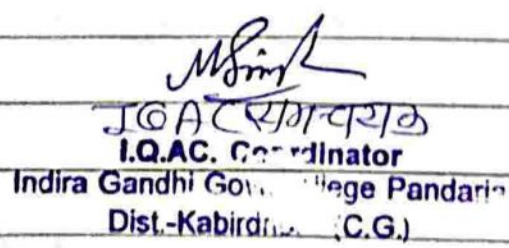 IQAC समन्वयक
I.Q.AC. Coordinator
Indira Gandhi Gov. College Pandaria
Dist.-Kabird (C.G.)